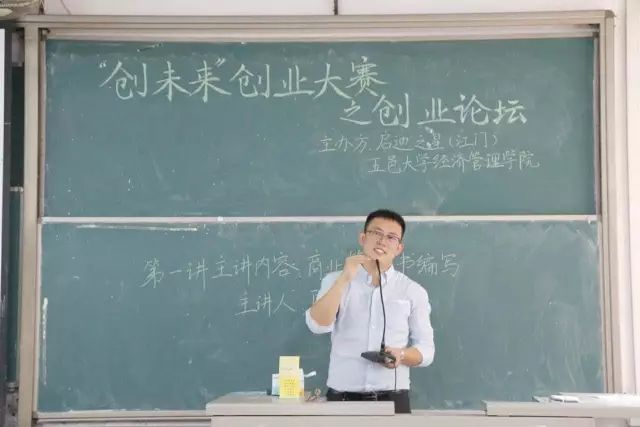 “创未来”创业大赛
之创业论坛
主办方:启迪之星(江门)
五邑大学经济管理学院
第一讲主讲内容:商业 书编写
主讲人